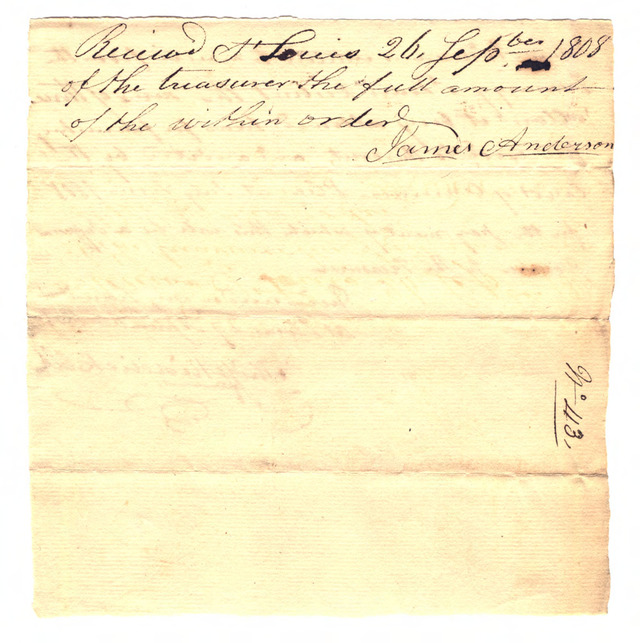 Recieved St Louis 26, Sepber 1808
of the treasurer the full amount
of the within order
James Anderson
No 43,